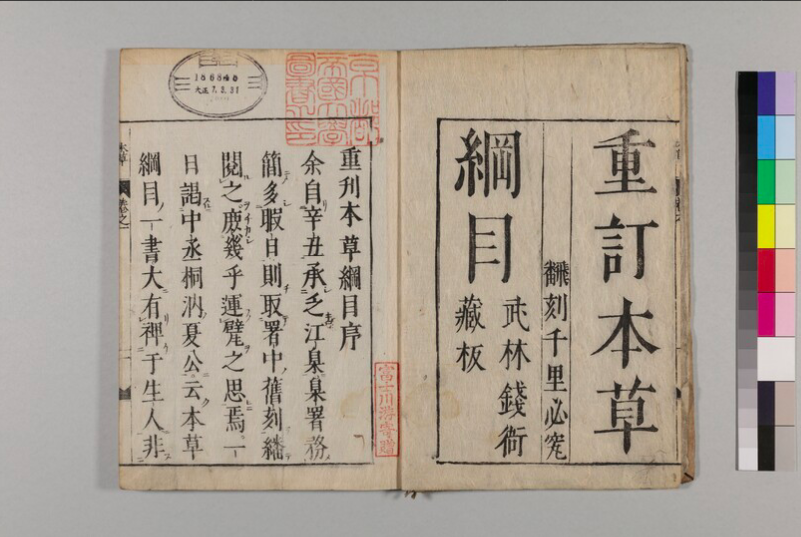 重訂本草
飜刻千里必究
綱目
武林錢衙
藏板
重刊本草綱目序
余自辛丑承乏江臬臬署務
簡多暇日則取署中舊刻繙
閱之庻幾乎運甓之思焉一
日謁中丞桐汭夏公云本草
綱目一書大有裨于生人非
京都帝國大學圖書之印
富士川游寄贈
186846
大正7.3.31